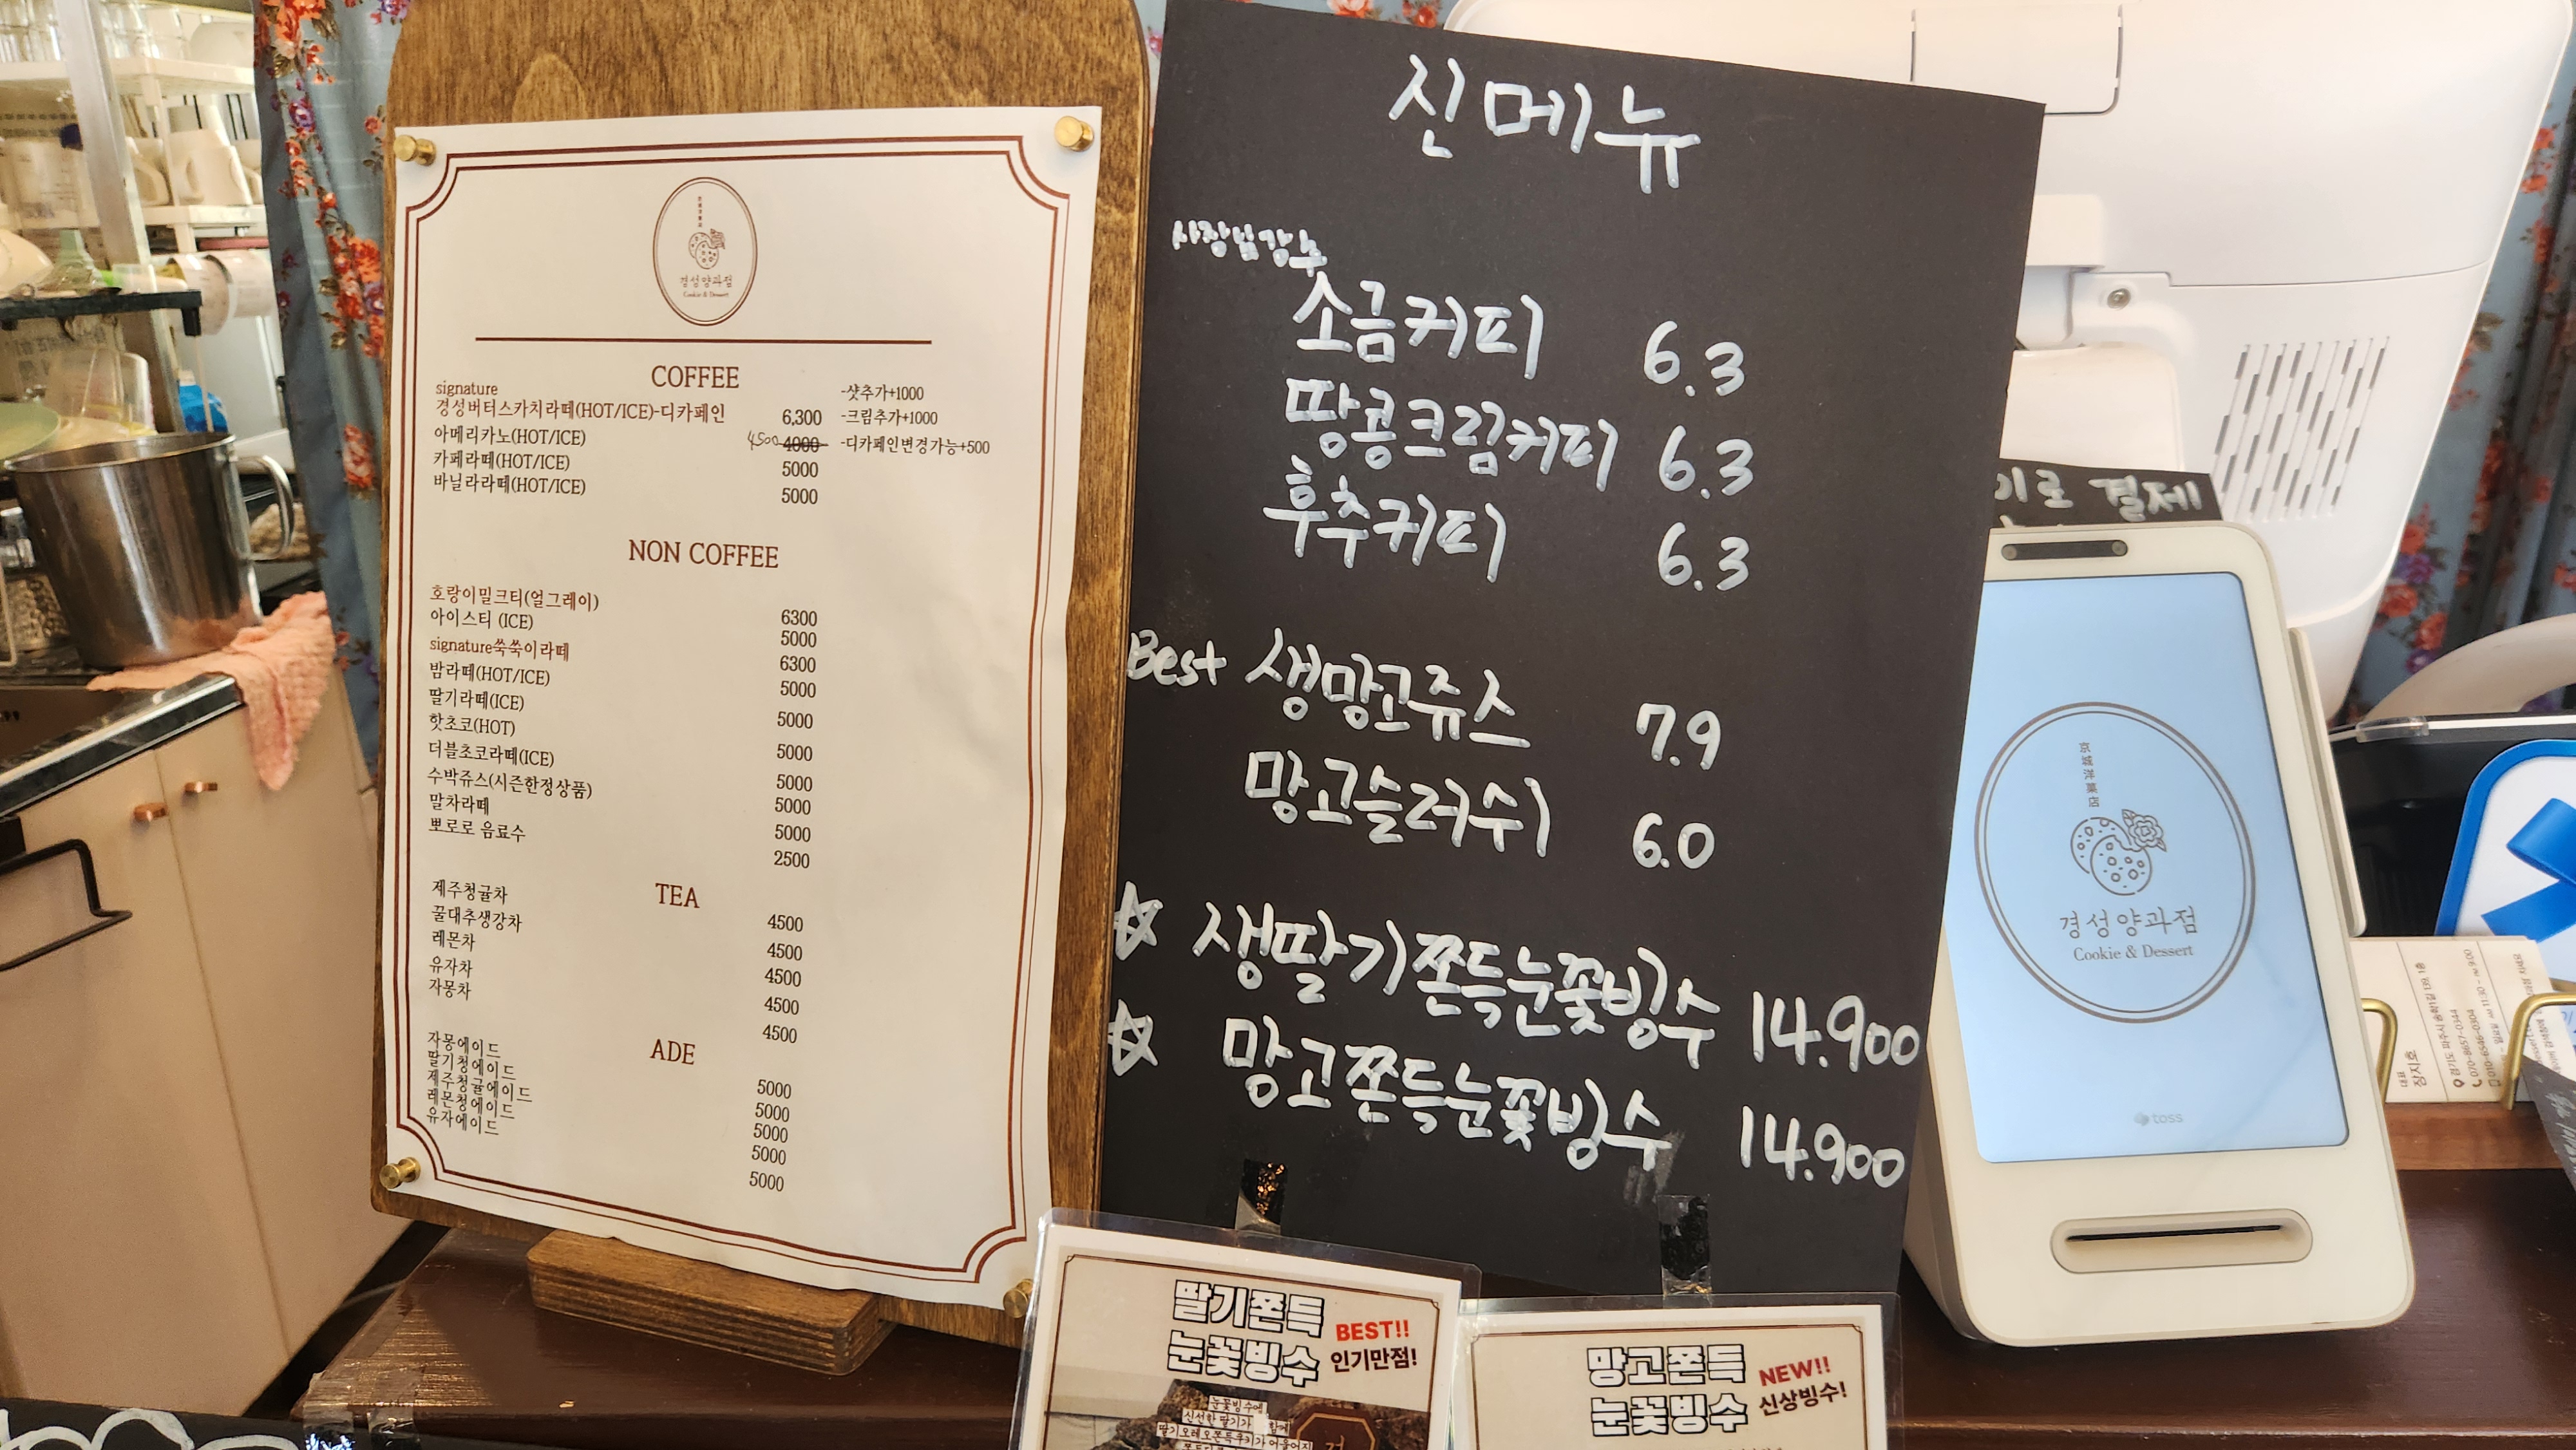 경성양과점
Cookie & Dessert
COFFEE
signature
경성버터스카치라떼(HOT/ICE)-디카페인 6,300
아메리카노(HOT/ICE) 4500 4000
카페라떼(HOT/ICE) 5000
바닐라라떼(HOT/ICE) 5000
-샷추가+1000
-크림추가+1000
-디카페인변경가능+500
NON COFFEE
호랑이밀크티(얼그레이) 6300
아이스티 (ICE) 5000
signature쑥쑥이라떼 6300
밤라떼(HOT/ICE) 5000
딸기라떼(ICE) 5000
핫초코(HOT) 5000
더블초코라떼(ICE) 5000
수박쥬스(시즌한정상품) 5000
말차라떼 5000
뽀로로 음료수 2500
TEA
제주청귤차 4500
꿀대추생강차 4500
레몬차 4500
유자차 4500
자몽차 4500
ADE
자몽에이드 5000
딸기청에이드 5000
제주청귤에이드 5000
레몬청에이드 5000
유자에이드 5000
신메뉴
사장님강추
소금커피 6.3
땅콩크림커피 6.3
후추커피 6.3
Best 생망고쥬스 7.9
망고슬러쉬 6.0
☆ 생딸기쫀득눈꽃빙수 14.900
☆ 망고쫀득눈꽃빙수 14.900
딸기쫀득
눈꽃빙수
BEST!!
인기만점!
눈꽃빙수에
신선한 딸기가 함께
망고쫀득
눈꽃빙수
NEW!!
신상빙수!
이로 결제
京城洋菓店
경성양과점
Cookie & Dessert
toss
대표
장지호
경기도 파주시 송학1길 139, 1층
070-8657-0344